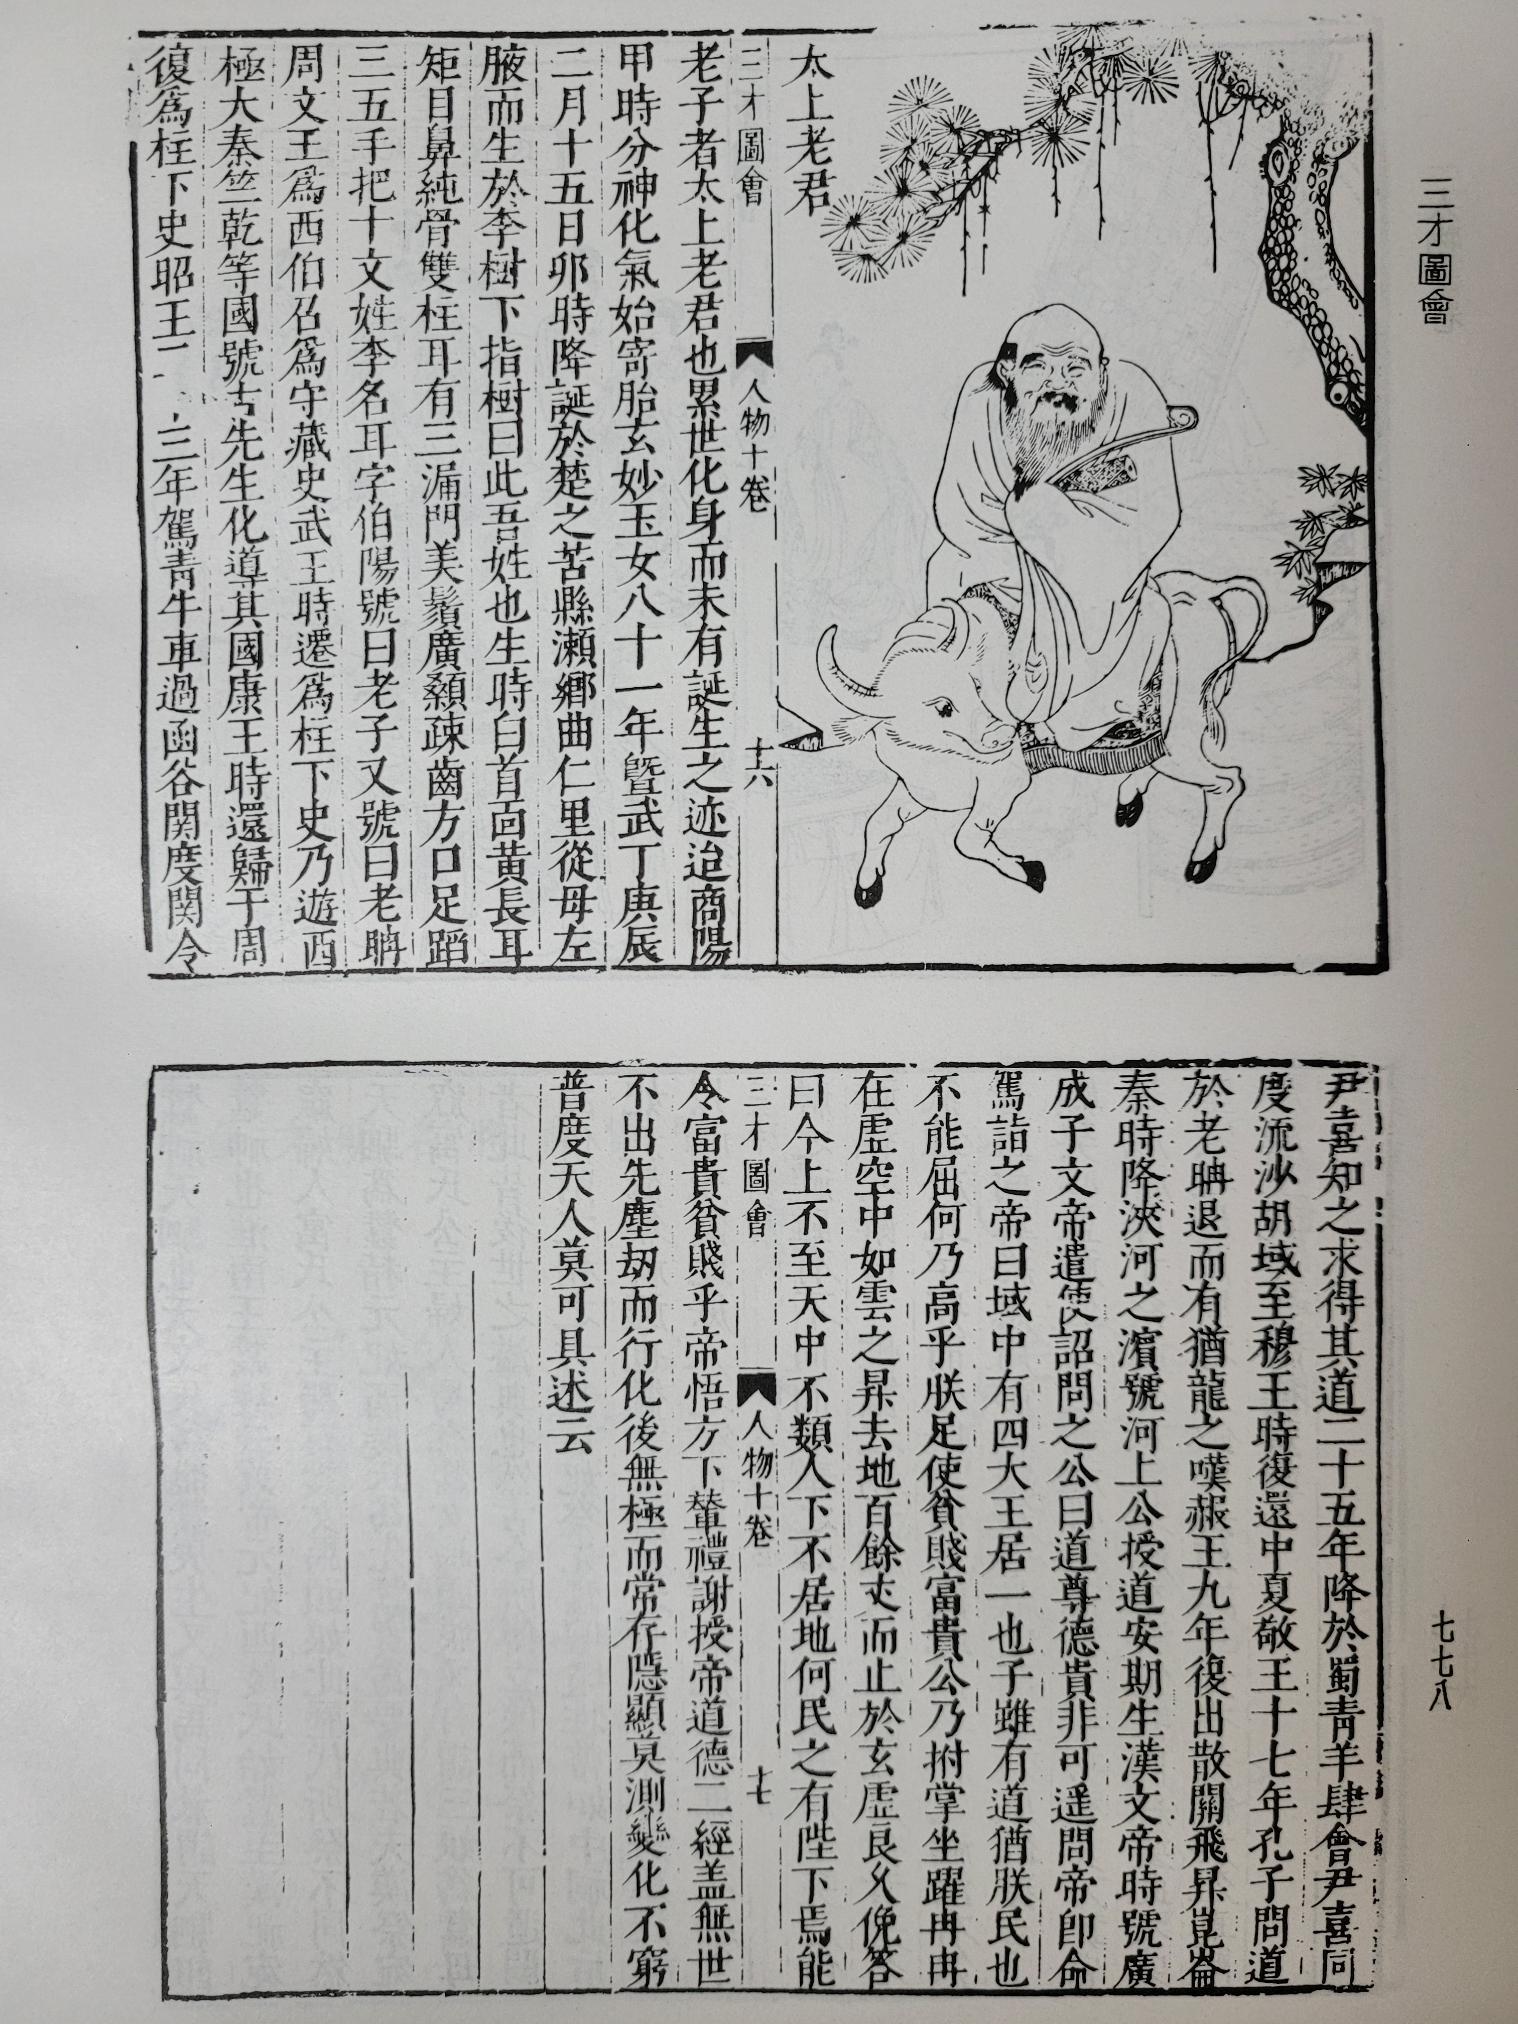 三才圖會
七七八
太上老君
三才圖會 人物十卷 十六
老子者太上老君也累世化身而未有誕生之迹迨商陽
甲時分神化氣始寄胎玄妙玉女八十一年曁武丁庚辰
二月十五日卯時降誕於楚之苦縣瀬鄉曲仁里從母左
腋而生於李樹下指樹曰此吾姓也生時白首面黃長耳
矩目鼻純骨雙柱耳有三漏門美鬚廣顙疎齒方口足蹈
三五手把十文姓李名耳字伯陽號曰老子又號曰老聃
周文王爲西伯召爲守藏史武王時遷爲柱下史乃遊西
極大秦竺乾等國號古先生化導其國康王時還歸于周
復爲柱下史昭王二 三年駕青牛車過函谷関度関令
尹喜知之求得其道二十五年降於蜀青羊肆會尹喜同
度流沙胡域至穆王時復還中夏敬王十七年孔子問道
於老聃退而有猶龍之嘆赧王九年復出散關飛昇崑崙
秦時降浹河之濱號河上公授道安期生漢文帝時號廣
成子文帝遣使詔問之公曰道尊德貴非可遥問帝卽命
駕詣之帝曰域中有四大王居一也子雖有道猶朕民也
不能屈何乃高乎朕足使貧賤富貴公乃拊掌坐躍冉冉
在虛空中如雲之昇去地百餘丈而止於玄虛良久俛答
曰今上不至天中不類人下不居地何民之有陛下焉能
三才圖會 人物十卷 十七
令富貴貧賤乎帝悟方下輦禮謝授帝道德二經盖無世
不出先塵劫而行化後無極而常存隱顯莫測變化不窮
普度天人莫可具述云